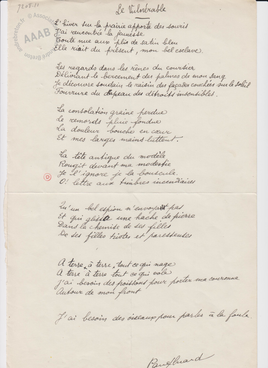 Le Vulnérable
L'hiver sur la prairie apporte des souris
J'ai rencontré la jeunesse
Toute nue aux plis de satin bleu
Elle riait du présent, mon bel esclave
Les regards dans les rênes du coursier
Délivrant le bercement des palmes de mon sang
Je découvre soudain le raisin des façades couchées sur le soleil
Fourrure du drapeau des détroits insensibles
La consolation graine perdue
Le remords pluie fondue
La douleur bouche en cœur
Et mes larges mains luttent
La tête antique du modèle
Rougit devant ma modestie
Je l'ignore je la bouscule
O! lettre aux timbres incendiaires
Qu'un bel espion n'envoya pas
Et qui glissa une hache de pierre
Dans la chemise de ses filles
De ses filles tristes et paresseuses
A terre, à terre tout ce qui nage
A terre à terre tout ce qui vole
J'ai besoin des poissons pour porter ma couronne
Autour de mon front
J'ai besoin des oiseaux pour parler à la foule
Paul Eluard
AAAB